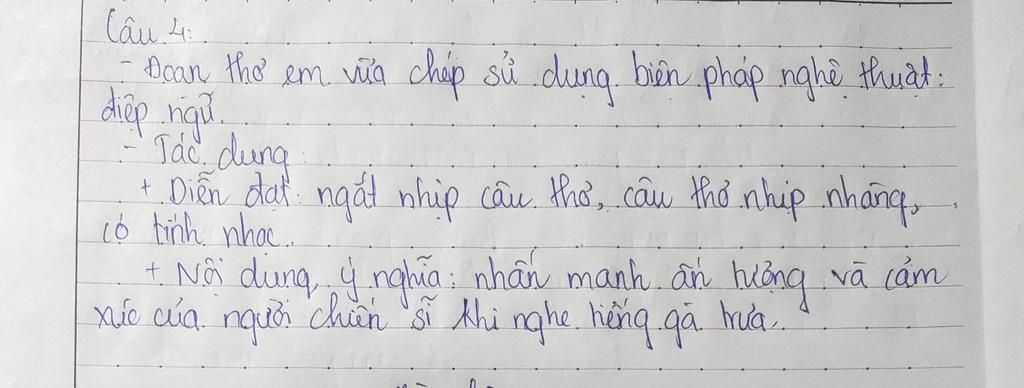 Câu 4:
- Đoạn thơ em vừa chép sử dụng biện pháp nghệ thuật:
điệp ngữ.
- Tác dụng
+ Diễn đạt: ngắt nhịp câu thơ, câu thơ nhịp nhàng,
có tính nhạc.
+ Nội dung, ý nghĩa: nhấn mạnh ấn tượng và cảm
xúc của người chiến sĩ khi nghe tiếng gà trưa.